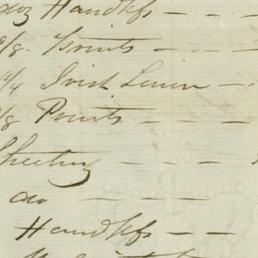 doz Handkfs - - -
/8 Prints - - -
4/4 Irish Linen - -
/8 Prints - - -
Sheeting - - -
do - - -
Handkfs - - -